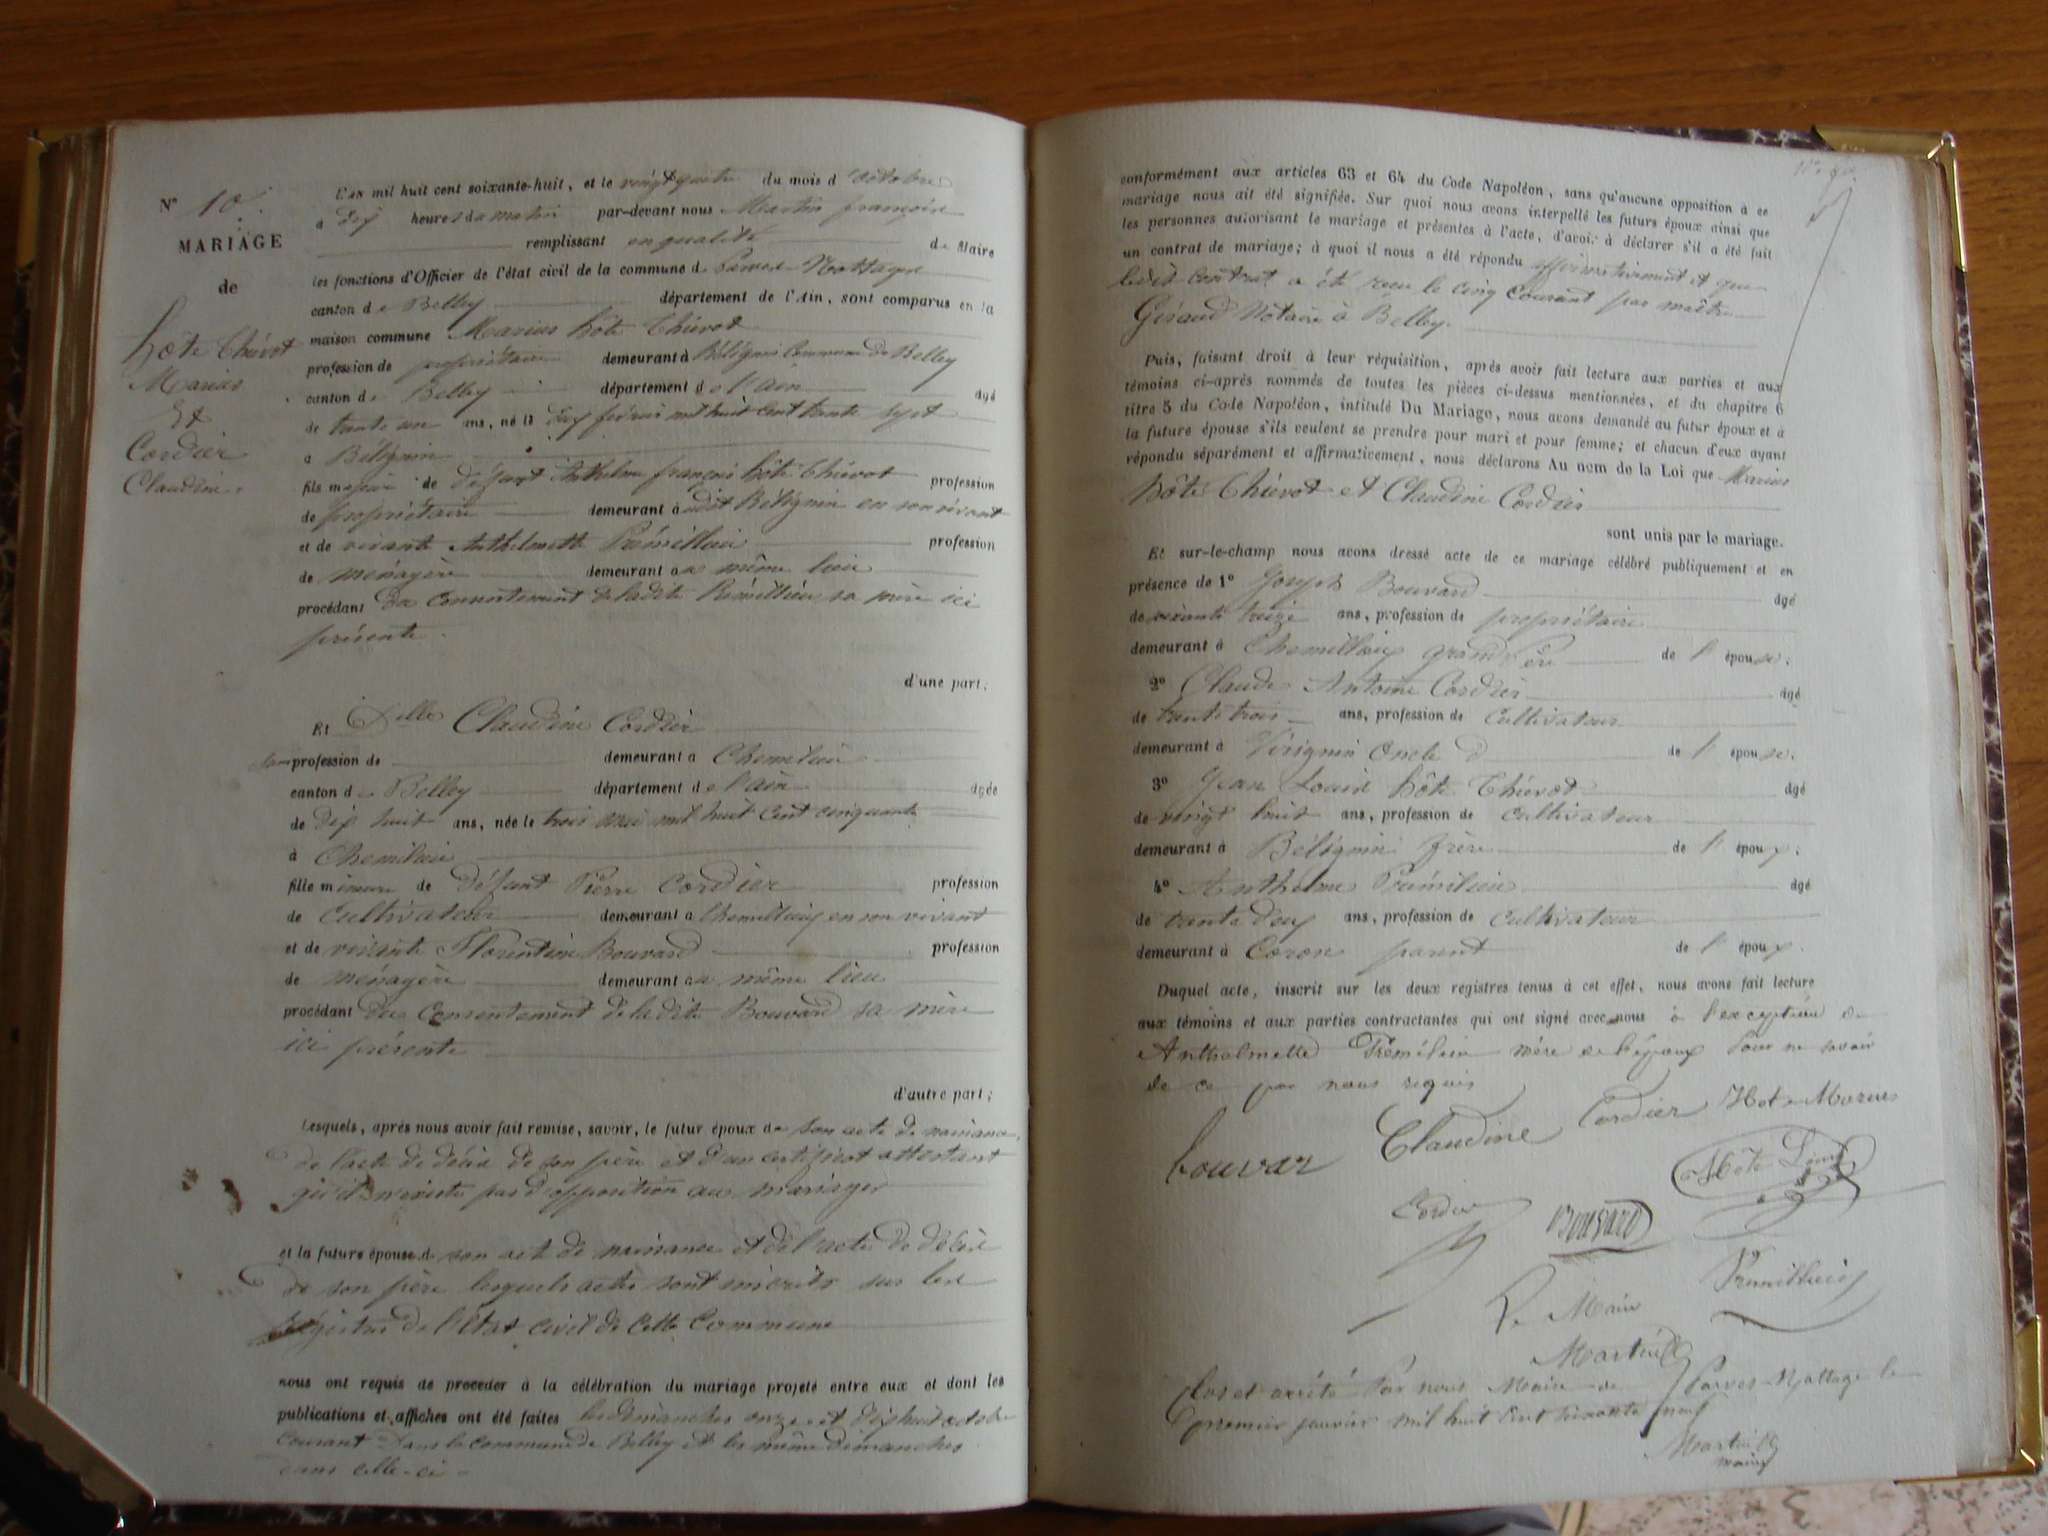 N° 10
MARIAGE
de
hôte Thiévot
Marius
Et
Cordier
Claudine
L'an mil huit cent soixante-huit, et le vingt quatre du mois d'octobre
à dix heures du matin par-devant nous Martin françois
remplissant en qualité de Maire
les fonctions d'Officier de l'état civil de la commune de Parves-Nattages
canton de Belley département de l'Ain, sont comparus en la
maison commune Marius hôte Thiévot
profession de propriétaire demeurant à Bélignin Commune de Belley
canton de Belley département de l'ain âgé
de trente un ans, né le dix février mil huit cent trente sept
à Bélignin
fils majeur de défunt Anthelme françois hôte Thiévot profession
de propriétaire demeurant à udit Bélignin en son vivant
et de vivante Anthelmette Prémillieu profession
de ménagère demeurant au même lieu
procédant du consentement de ladite Prémillieu sa mère ici
présente.
d'une part;
Et Delle Claudine Cordier
sans profession de demeurant à Chemilieu
canton de Belley département de l'ain âgée
de dix huit ans, née le trois mai mil huit cent cinquante
à Chemilieu
fille mineure de défunt Pierre Cordier profession
de Cultivateur demeurant à Chemillieu en son vivant
et de vivante Florentine Bouvard profession
de ménagère demeurant au même lieu
procédant du Consentement de ladite Bouvard sa mère
ici présente
d'autre part;
Lesquels, après nous avoir fait remise, savoir, le futur époux de son acte de naissance,
de l'acte de décès de son père et d'un certificat attestant
qu'il n'existe pas d'opposition au mariage
et la future épouse de son acte de naissance et de l'acte de décès
de son père lesquels actes sont inscrits sur les
Régistres de l'état civil de cette Commune
nous ont requis de procéder à la célébration du mariage projeté entre eux et dont les
publications et affiches ont été faites les dimanches onze et dix huit octobre
courant dans la commune de Belley et les même dimanches
dans celle-ci
conformément aux articles 63 et 64 du Code Napoléon, sans qu'aucune opposition à ce
mariage nous ait été signifiée. Sur quoi nous avons interpellé les futurs époux ainsi que
les personnes autorisant le mariage et présentes à l'acte, d'avoir à déclarer s'il a été fait
un contrat de mariage; à quoi il nous a été répondu affirmativement et que
ledit contrat a été reçu le cinq courant par maître
Géraud Notaire à Belley.
Puis, faisant droit à leur réquisition, après avoir fait lecture aux parties et aux
témoins ci-après nommés de toutes les pièces ci-dessus mentionnées, et du chapitre 6
titre 5 du Code Napoléon, intitulé Du Mariage, nous avons demandé au futur époux et à
la future épouse s'ils veulent se prendre pour mari et pour femme; et chacun d'eux ayant
répondu séparément et affirmativement, nous déclarons Au nom de la Loi que Marius
hôte Thiévot et Claudine Cordier
sont unis par le mariage.
Et sur-le-champ nous avons dressé acte de ce mariage célébré publiquement et en
présence de 1° Joseph Bouvard âgé
de soixante treize ans, profession de propriétaire
demeurant à Chemillieu grand Père de l'épouse;
2° Claude Antoine Cordier âgé
de trente trois ans, profession de Cultivateur
demeurant à Virignin Oncle de l'épouse.
3° Jean Louis hôte Thiévot âgé
de vingt huit ans, profession de Cultivateur
demeurant à Bélignin frère de l'époux.
4° Anthelme Prémilieu âgé
de trente deux ans, profession de Cultivateur
demeurant à Coron parent de l'époux.
Duquel acte, inscrit sur les deux registres tenus à cet effet, nous avons fait lecture
aux témoins et aux parties contractantes qui ont signé avec nous à l'exception de
Anthelmette Prémilieu mère de l'époux Pour ne savoir
de ce par nous requis
Claudine Cordier Hote Marius
bouvar
Hôte Louis
Cordier Bouvard
Prémillieu
Le Maire
Martin
Clos et arrêté Par nous Maire de Parves-Nattage le
premier janvier mil huit cent soixante neuf
Martin
maire